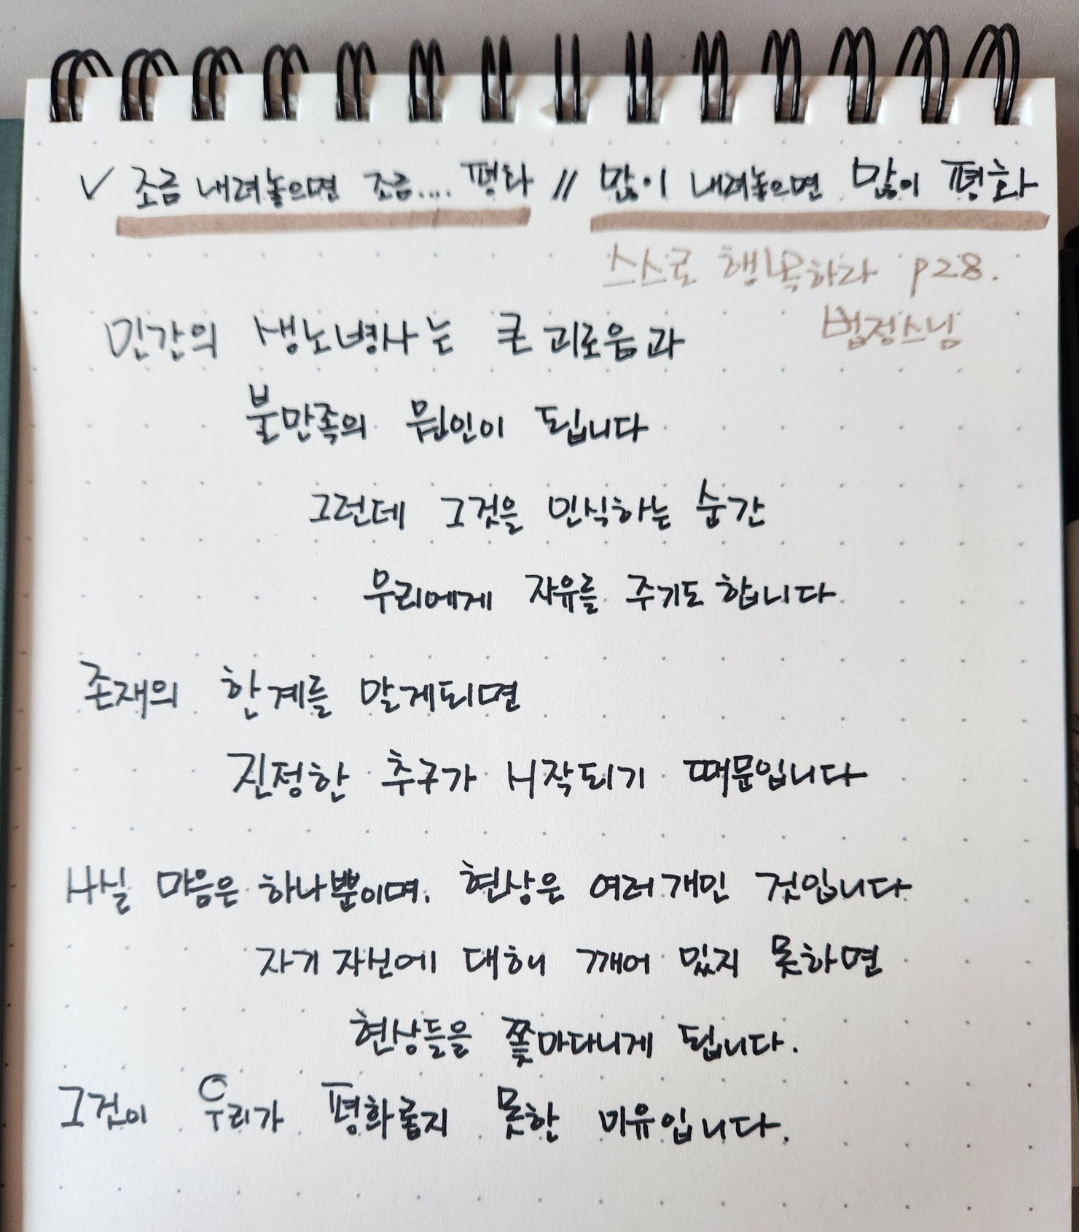 ✓ 조금 내려놓으면 조금.... 평화 // 많이 내려놓으면 많이 평화
스스로 행복하라 p28.
법정스님
인간의 생노병사는 큰 괴로움과
불만족의 원인이 됩니다
그런데 그것을 인식하는 순간
우리에게 자유를 주기도 합니다
존재의 한계를 알게되면
진정한 추구가 시작되기 때문입니다
사실 마음은 하나뿐이며, 현상은 여러개인 것입니다
자기 자신에 대해 깨어 있지 못하면
현상들을 쫓아다니게 됩니다.
그것이 우리가 평화롭지 못한 이유입니다.